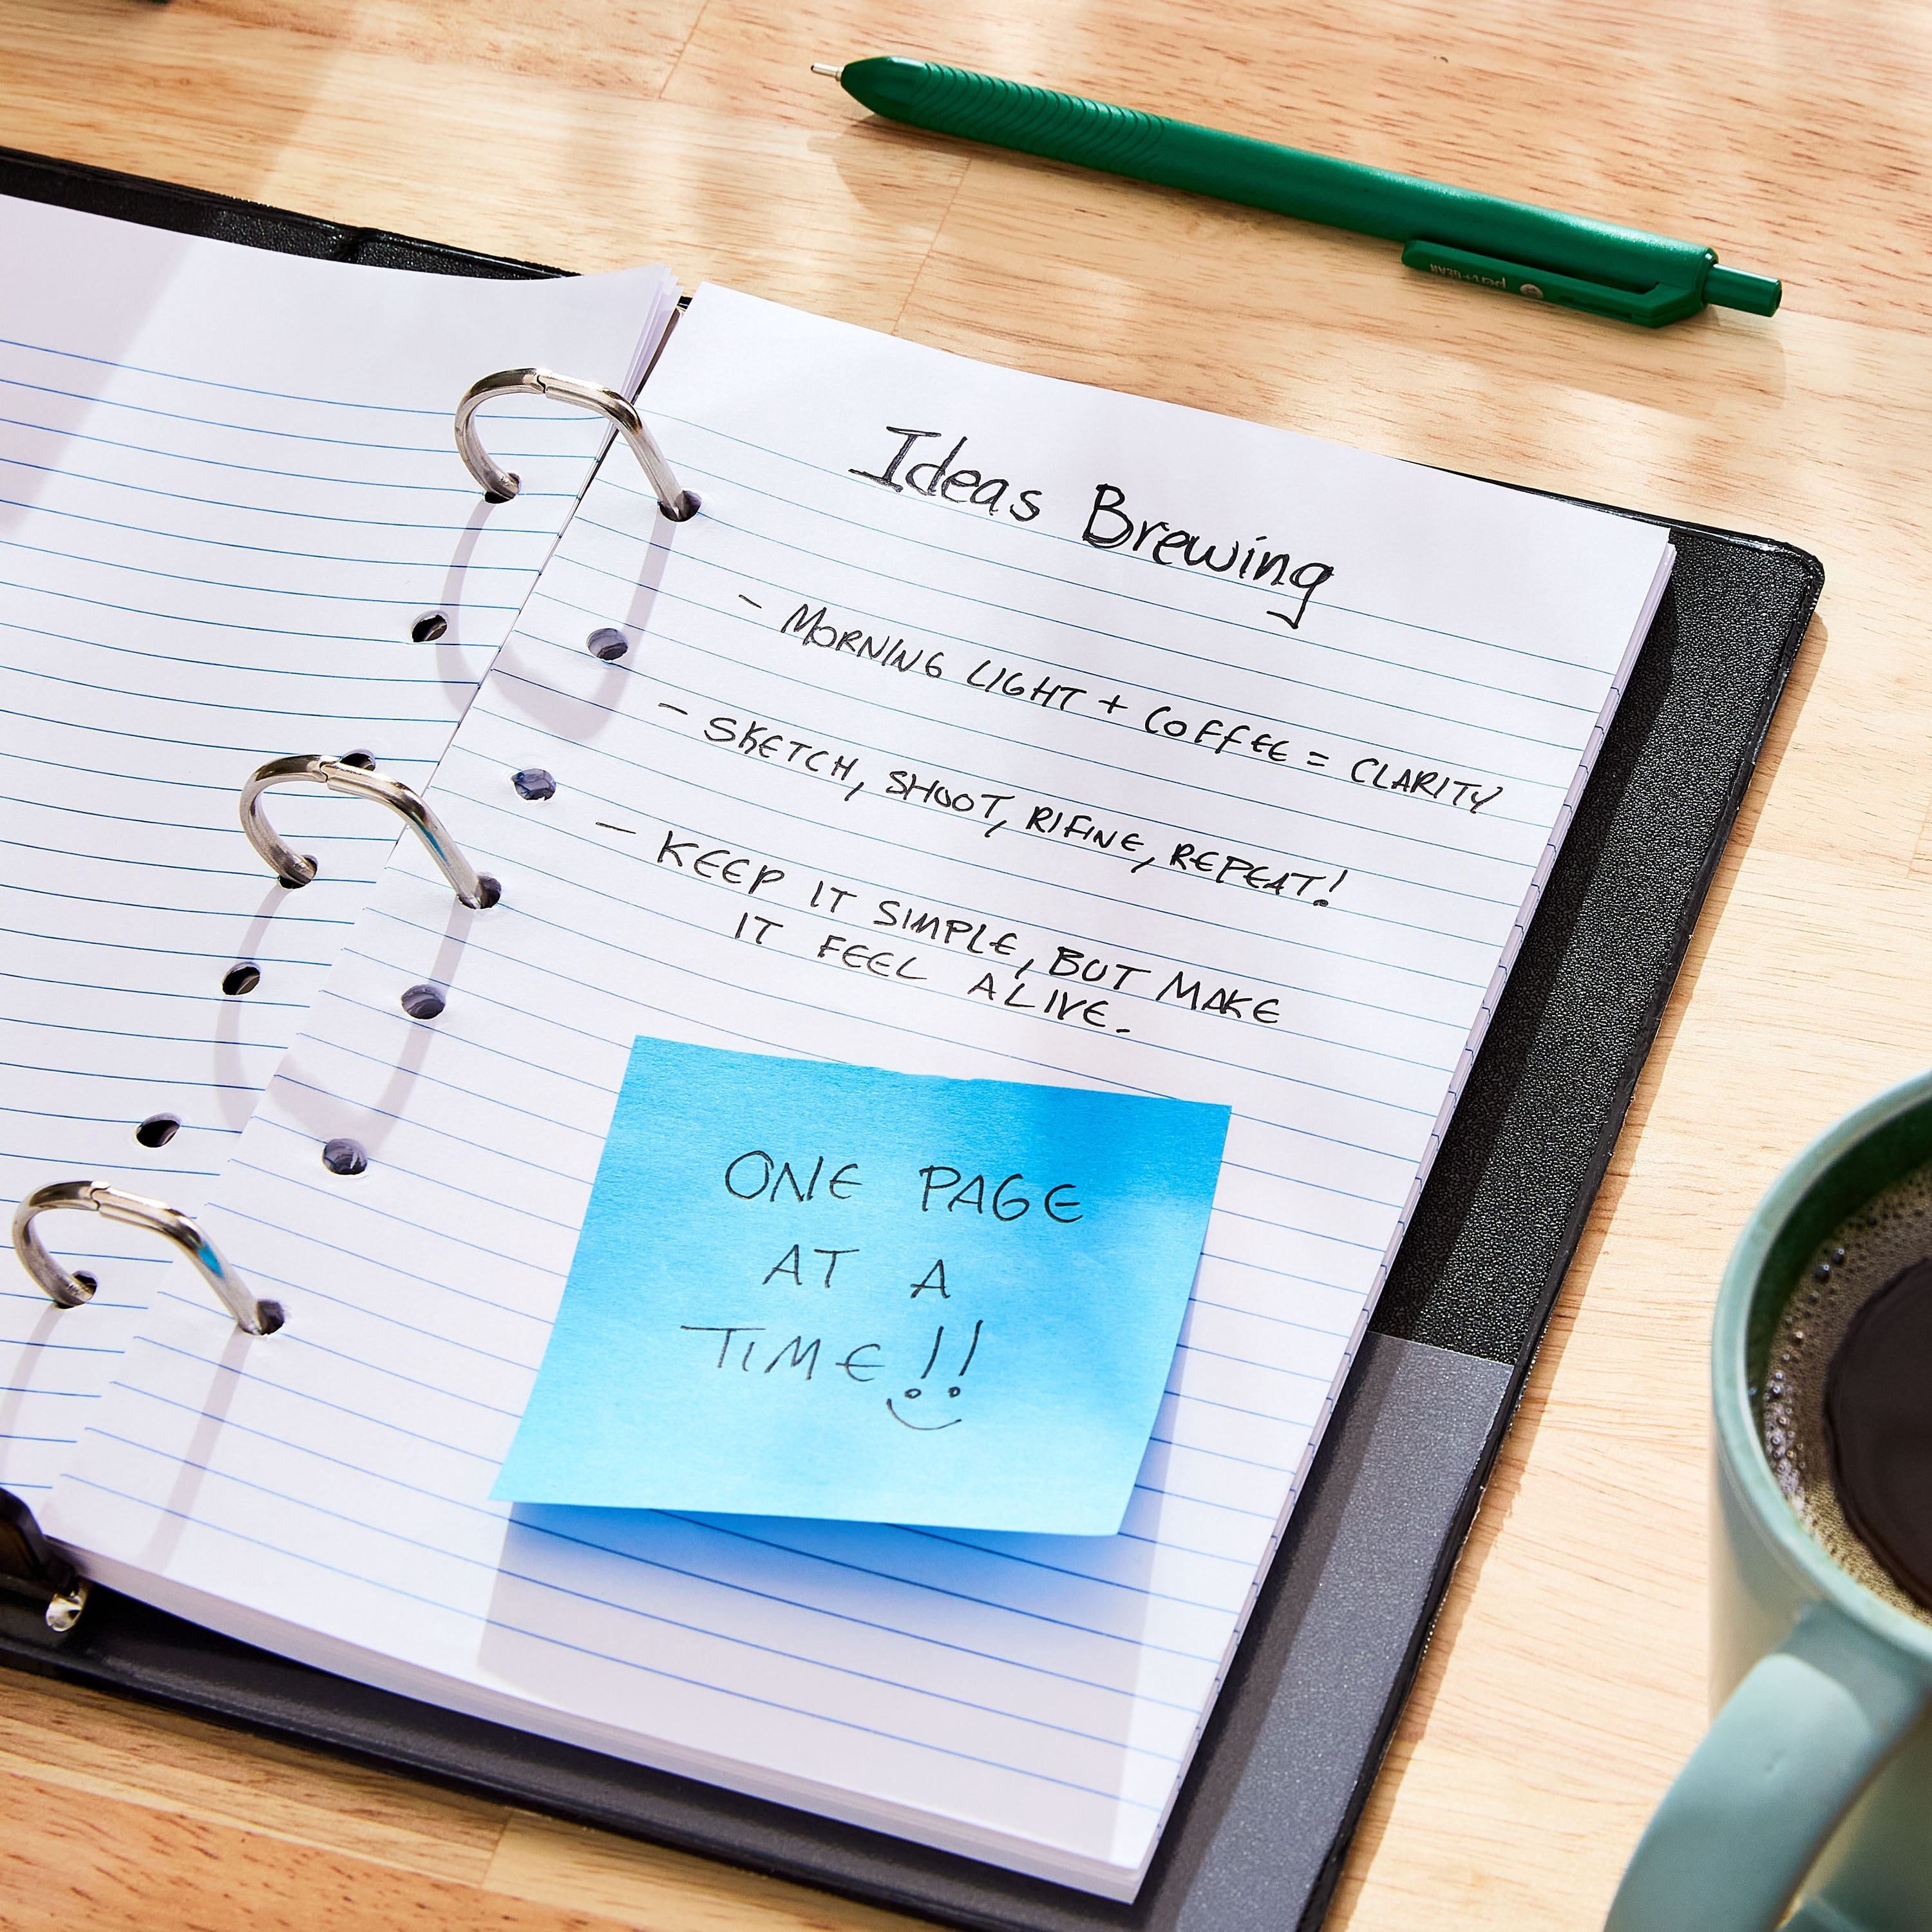 Ideas Brewing
- MORNING LIGHT + COFFEE = CLARITY
- SKETCH, SHOOT, RIFINE, REPEAT!
- KEEP IT SIMPLE, BUT MAKE
IT FEEL ALIVE.
ONE PAGE
AT A
TIME!!
pen+gear